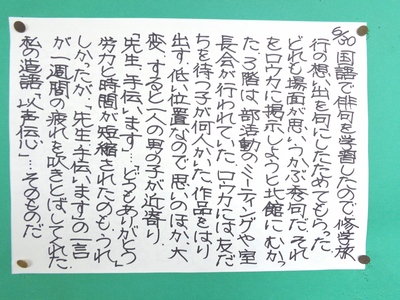 6/30 国語で俳句を学習したので修学旅
行の想い出を句にしたためてもらった。
どれも場面が思いうかぶ秀句だ。それ
をロウカに掲示しようと北館にむかっ
た。3階は、部活動のミーティングや室
長会が行われていた。ロウカには友だ
ちを待つ子が何人かいた。作品をはり
出す、低い位置なので思いのほか、大
変、すると一人の男の子が近寄り、
「先生、手伝います」…どうもありがとう」
労力と時間が短縮されたのもうれ
しかったが、「先生、手伝います」の一言
が一週間の疲れを吹きとばしてくれた。
私の造語「以声伝心」…そのものだ